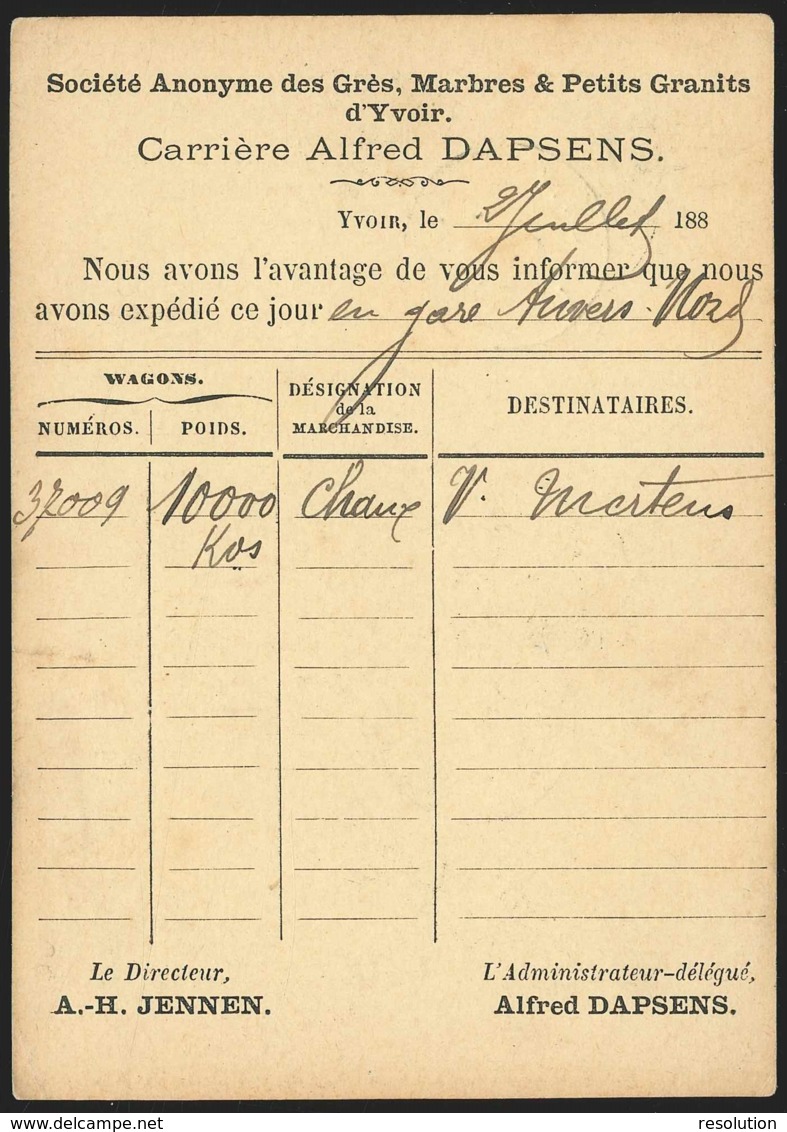 Société Anonyme des Grès, Marbres & Petits Granits
d'Yvoir.
Carrière Alfred DAPSENS.
Yvoir, le 2 Juillet 188
Nous avons l'avantage de vous informer que nous
avons expédié ce jour en gare Anvers-Nord
WAGONS.
NUMÉROS. POIDS. DÉSIGNATION de la MARCHANDISE. DESTINATAIRES.
37009 10000 Chaux V. Mertens
Kos
Le Directeur, L'Administrateur-délégué,
A.-H. JENNEN. Alfred DAPSENS.
delcampe.net resolution